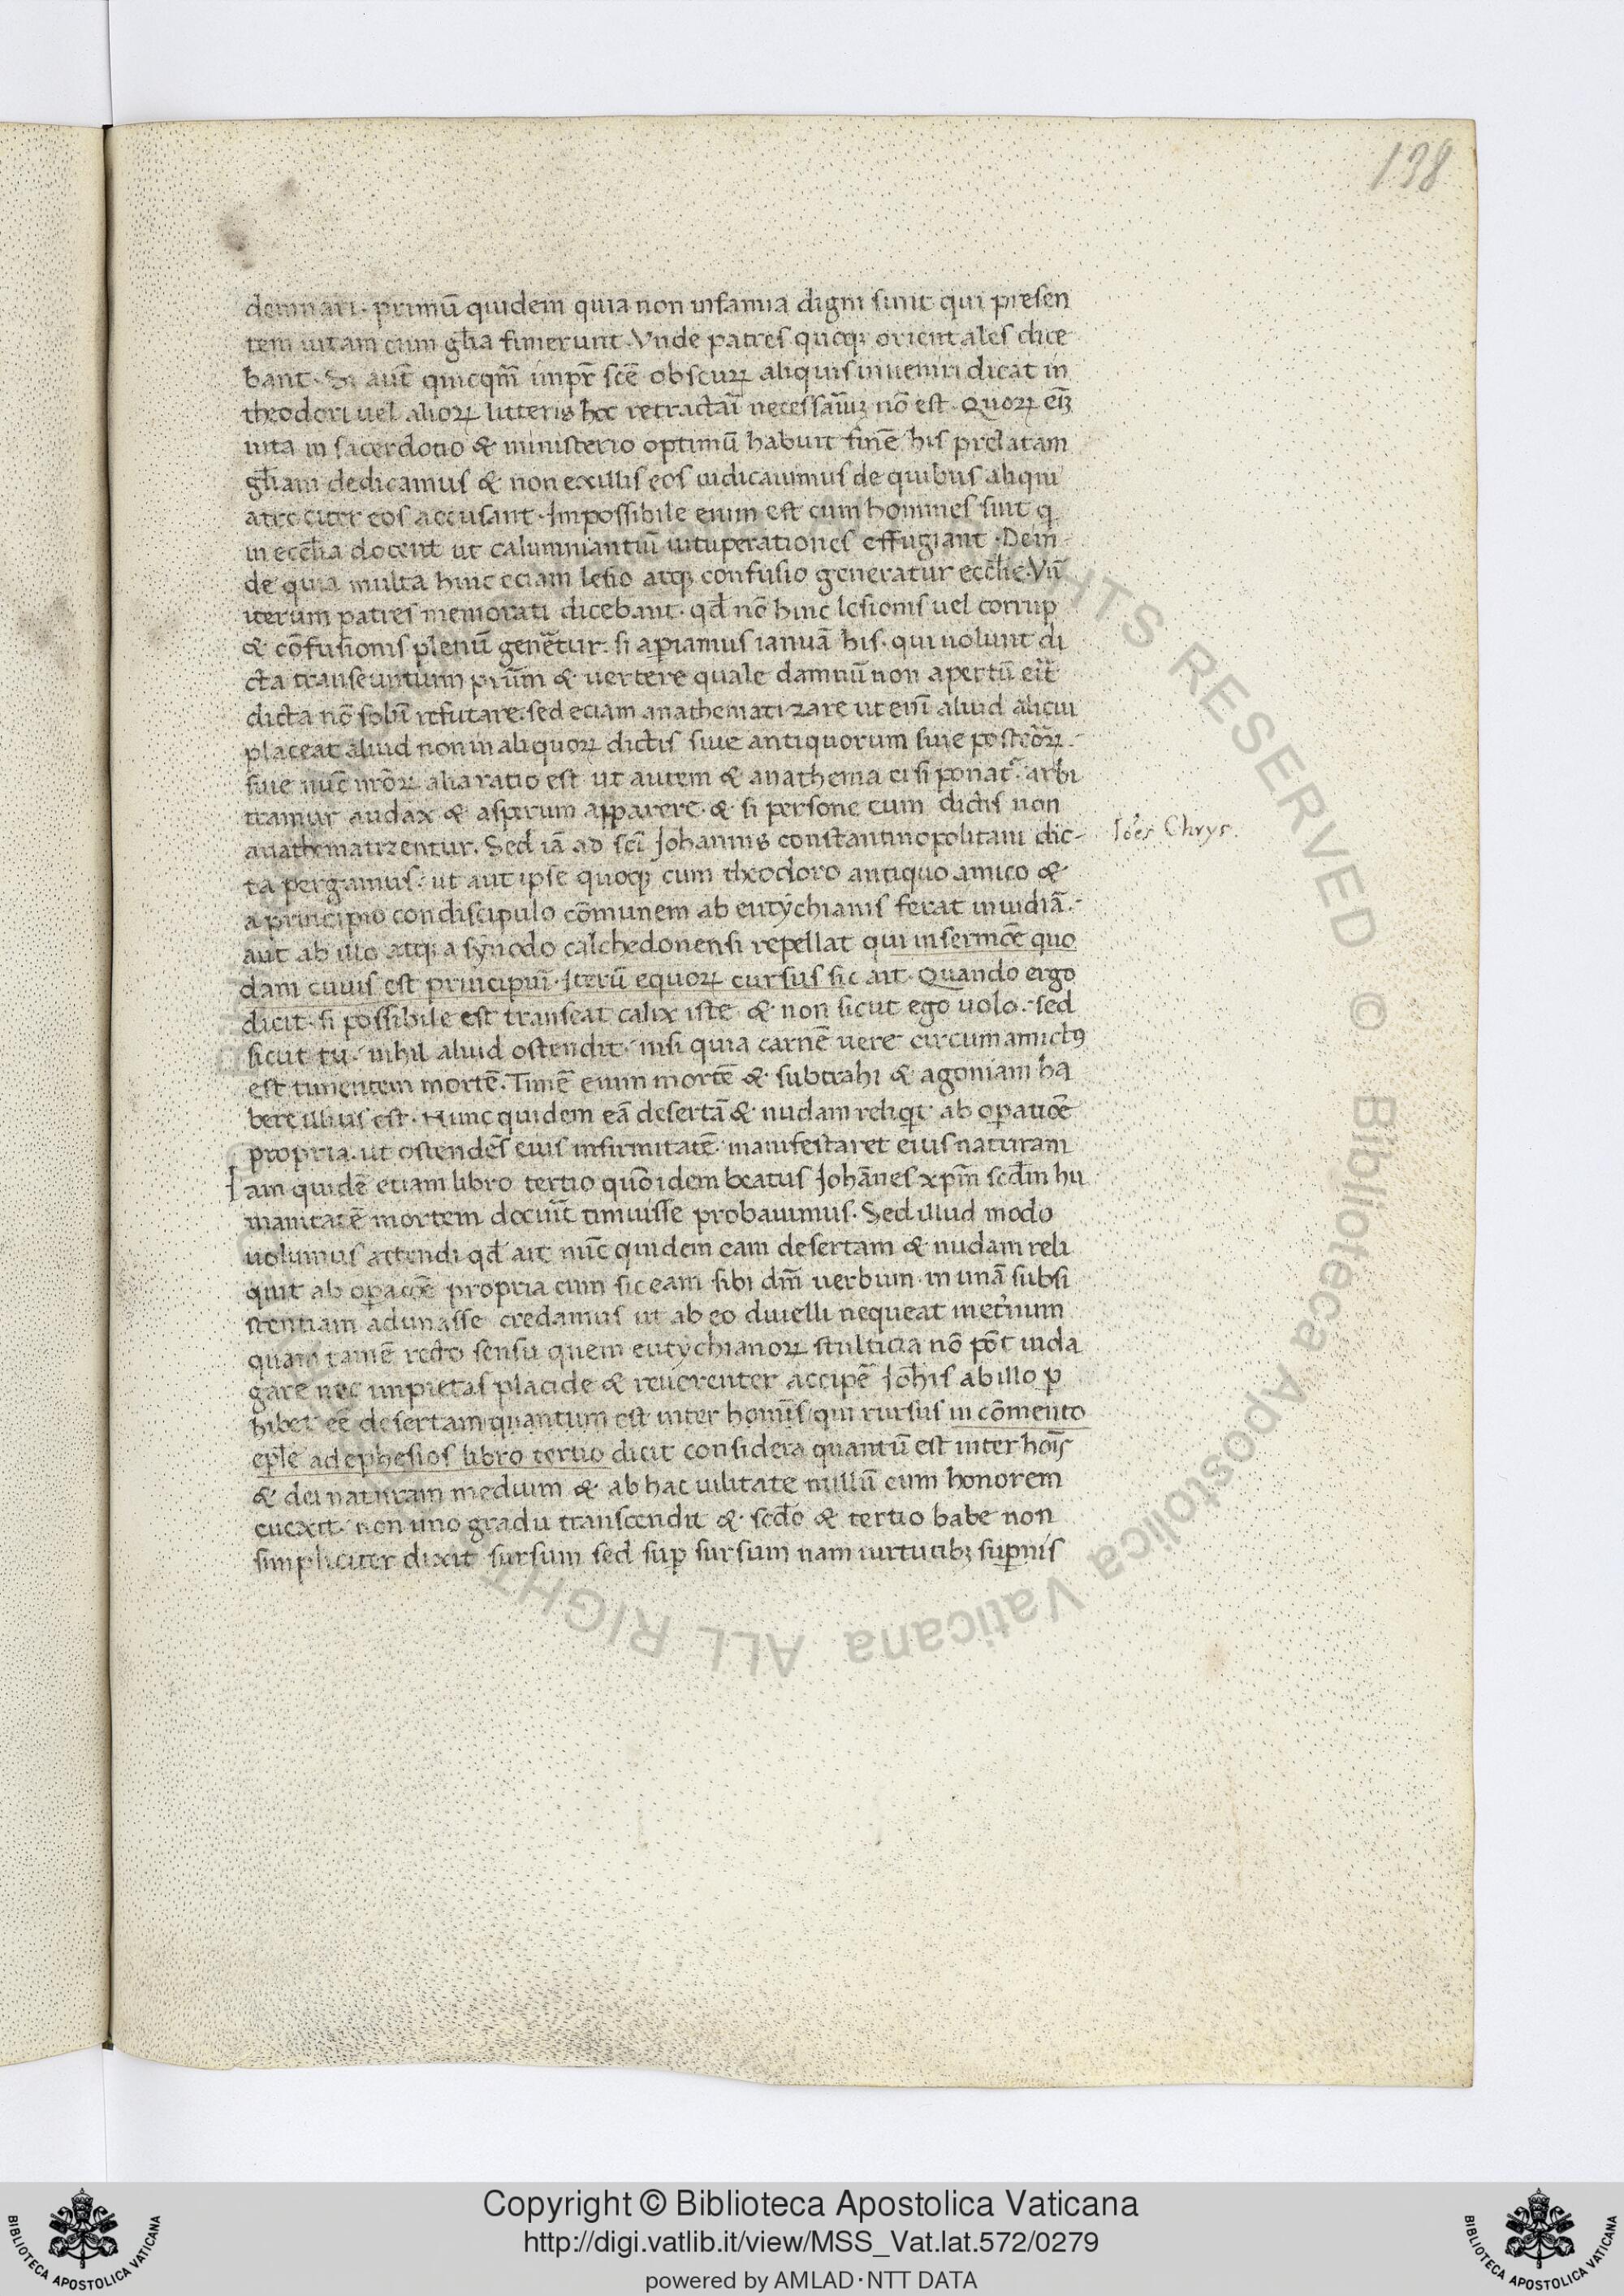 138
demnari· primū quidem quia non infamia digni sunt qui presen
tem uitam cum glīa finierunt· Vnde patres quoqꝫ orientales dice
bant· Si aut̄ quicqm̄ impr̄ scē obscurꝝ aliquis inueniri dicat in
theodori uel aliorꝝ litteris hoc retractāi necessāiuꝫ nō est· Quorꝝ eīꝫ
uita in sacerdotio & ministerio optimū habuit finē his prelatam
glīam dedicamus & non ex illis eos iudicauimus de quibus aliqui
atrociter eos accusant· Impossibile enim est cum homines sint q
in ecclīa docent ut calumniantiū uituperationes effugiant· Dein-
de quia multa hinc eciam lesio atqꝫ confusio generatur ecclīe· Vn̄
iterum patres memorati dicebant· qd̄ nō hinc lesionis uel corrup
& cōfusionis plenū genēatur· si aperiamus ianuā his· qui uolunt di
cta transeuntium prūm & uertere quale damnū non apertū erit
dicta nō solū refutare· sed eciam anathematizare ut enī aliud alicui
placeat aliud non in aliquorꝝ dictis siue antiquorum siue posteōrꝝ·
siue nūc nr̄orꝝ alia ratio est ut autem & anathema ei si ponat᷑· arbi
tramur audax & asperum apparere· & si persone cum dictis non
anathematizentur· Sed iā ad scī Johannis constantinopolitani dic-
Ioēs Chrys.
ta pergamus· ut aut ipse quoqꝫ cum theodoro antiquo amico &
a principio condiscipulo cōmunem ab eutychianis ferat inuidiā·
aut ab illo atqꝫ a synodo calchedonensi repellat qui in sermōe quo
dam cuius est principiū· Iterū equorꝝ cursus sic ait· Quando ergo
dicit· si possibile est transeat calix iste & non sicut ego uolo· sed
sicut tu· nihil aliud ostendit· nisi quia carnē uere circumamictꝰ
est timentem mortē· Timē enim mortē & subtrahi & agoniam ha
bere illius est· Nunc quidem eā desertā & nudam reliqt ab oꝑatiōe
propria· ut ostendēs eius infirmitatē· manifestaret eius naturam
Iam quidē etiam libro tertio quō idem beatus Johānes xpm̄ scdm̄ hu
manitatē mortem docuīt timuisse probauimus· Sed illud modo
uolumus attendi qd̄ ait nūc quidem eam desertam & nudam reli
quit ab oꝑacōe propria cum sic eam sibi dm̄ uerbum in unā subsi
stentiam adunasse credamus ut ab eo diuelli nequeat
quam tamē recto sensu quem eutychianorꝝ stulticia nō pōt inda
gare nec impietas placide & reuerenter accipē Joh̄is ab illo ꝑ
hibet eē desertam quantum est inter homīs qui rursus in cōmento
epl̄e ad ephesios libro tertio dicit considera quantū est inter hoīs
& dei naturam medium & ab hac uilitate nullū eum honorem
euexit· non uno gradu transcendit & scdō & tertio babe non
simpliciter dixit sursum sed suꝑ sursum nam uirtutibꝫ suꝑnis
Copyright © Biblioteca Apostolica Vaticana
http://digi.vatlib.it/view/MSS_Vat.lat.572/0279
powered by AMLAD·NTT DATA